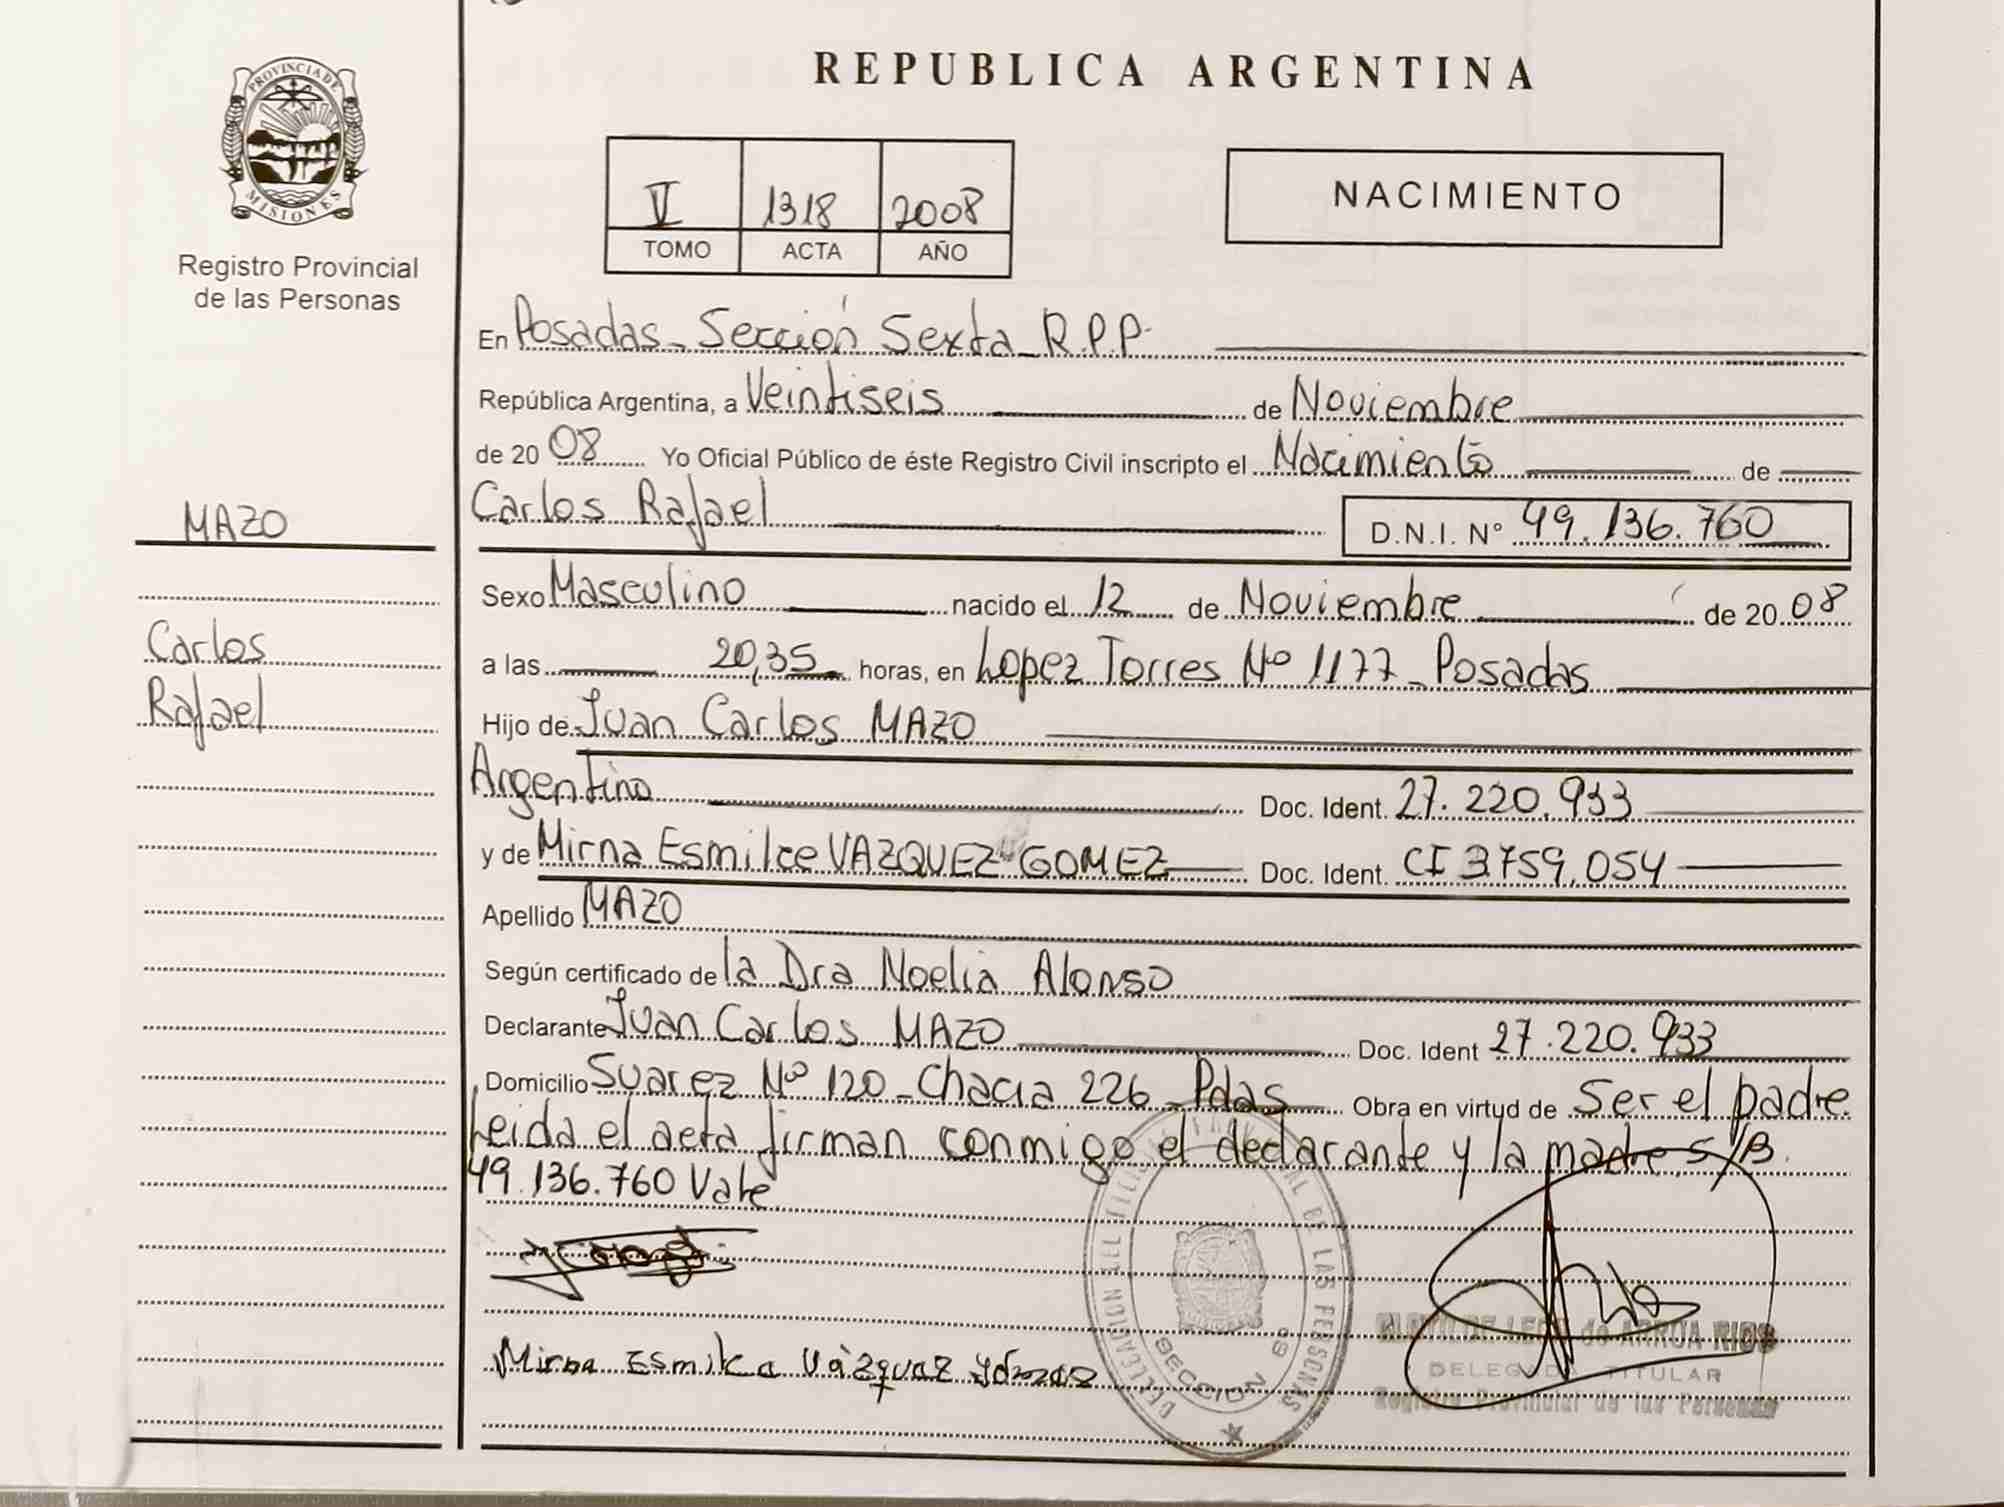 REPUBLICA ARGENTINA
PROVINCIA DE
MISIONES
Registro Provincial
de las Personas
V 1318 2008
TOMO ACTA AÑO
NACIMIENTO
En Posadas_ Sección Sexta_ R.P.P.
República Argentina, a Veintiseis de Noviembre
de 2008 Yo Oficial Público de éste Registro Civil inscripto el Nacimiento de
MAZO
Carlos Rafael D.N.I. Nº 49.136.760
Sexo Masculino nacido el 12 de Noviembre de 2008
Carlos
a las 20,35 horas, en Lopez Torres Nº 1177_ Posadas
Rafael
Hijo de Juan Carlos MAZO
Argentino Doc. Ident. 27.220.933
y de Mirna Esmilce VAZQUEZ GOMEZ Doc. Ident. CI 3759.054
Apellido MAZO
Según certificado de la Dra Noelia Alonso
Declarante Juan Carlos MAZO Doc. Ident 27.220.933
Domicilio Suarez Nº 120_Chacra 226_Pdas Obra en virtud de Ser el padre
Leida el acta firman conmigo el declarante y la madre, S/B.
49.136.760 Vale
DE LAS PERSONAS
SECCION 6ª
Mirna Esmilce Vázquez
DE LEON de ARRUA RIOS
DELEGADA TITULAR
Registro Provincial de las Personas